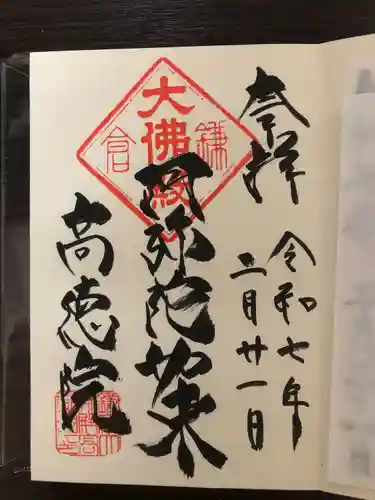 奉拝
令和七年
二月廿一日
大佛殿
鎌倉
阿弥陀如来
高徳院